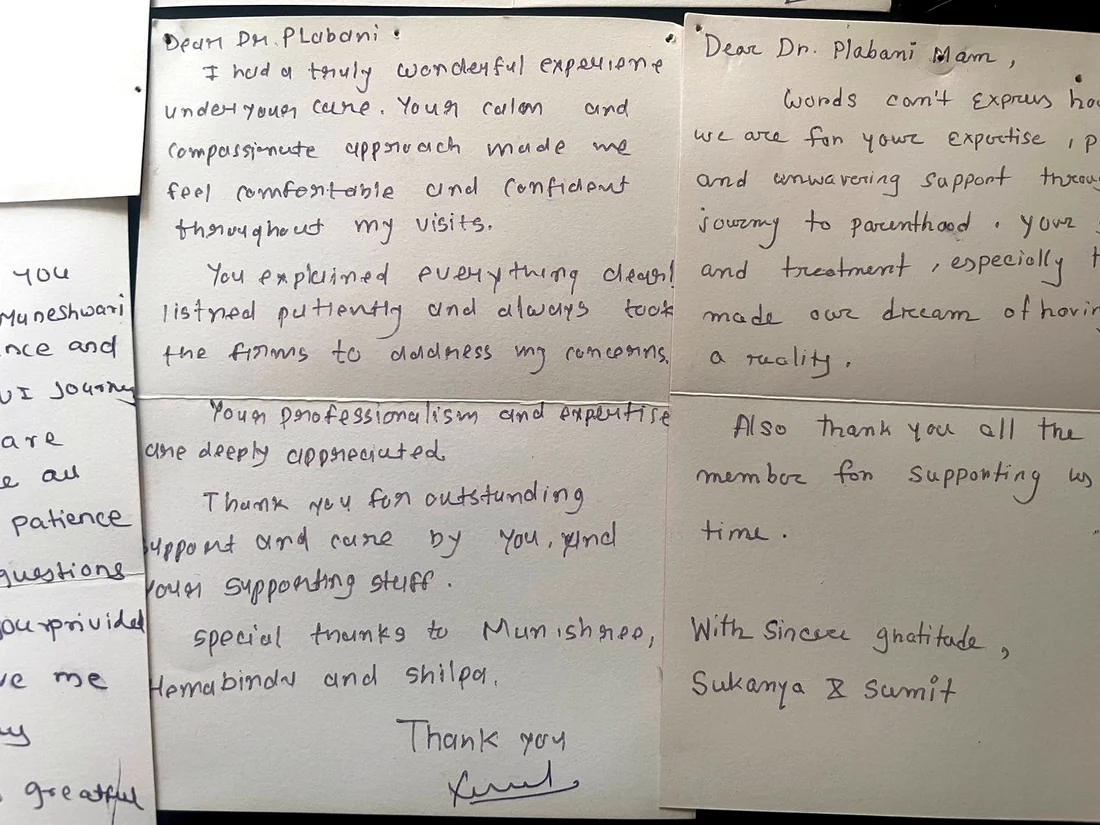 you
Muneshwari
nce and
UI Journey
are
e all
patience
questions
ou privided
ve me
greatful
Dear Dr. Plabani
I had a truly wonderful experiene
under your care. Your calm and
compassionate approach made me
feel comfortable and confident
throughout my visits.
You explained everything clearl
listned patiently and always took
the firms to address my concerns.
Your professionalism and expertise
are deeply appreciated.
Thank you for outstanding
support and care by you. And
your supporting staff.
special thanks to Munishree,
Hemabindu and shilpa.
Thank you
Dear Dr. Plabani Mam,
Words can't express ho
we are for your expertise, p
and unwavering support throug
journy to parenthood. your
and treatment, especially t
made our dream of havin
a reality.
Also thank you all the
member for supporting us
time.
With Sincere gratitude,
Sukanya & Sumit